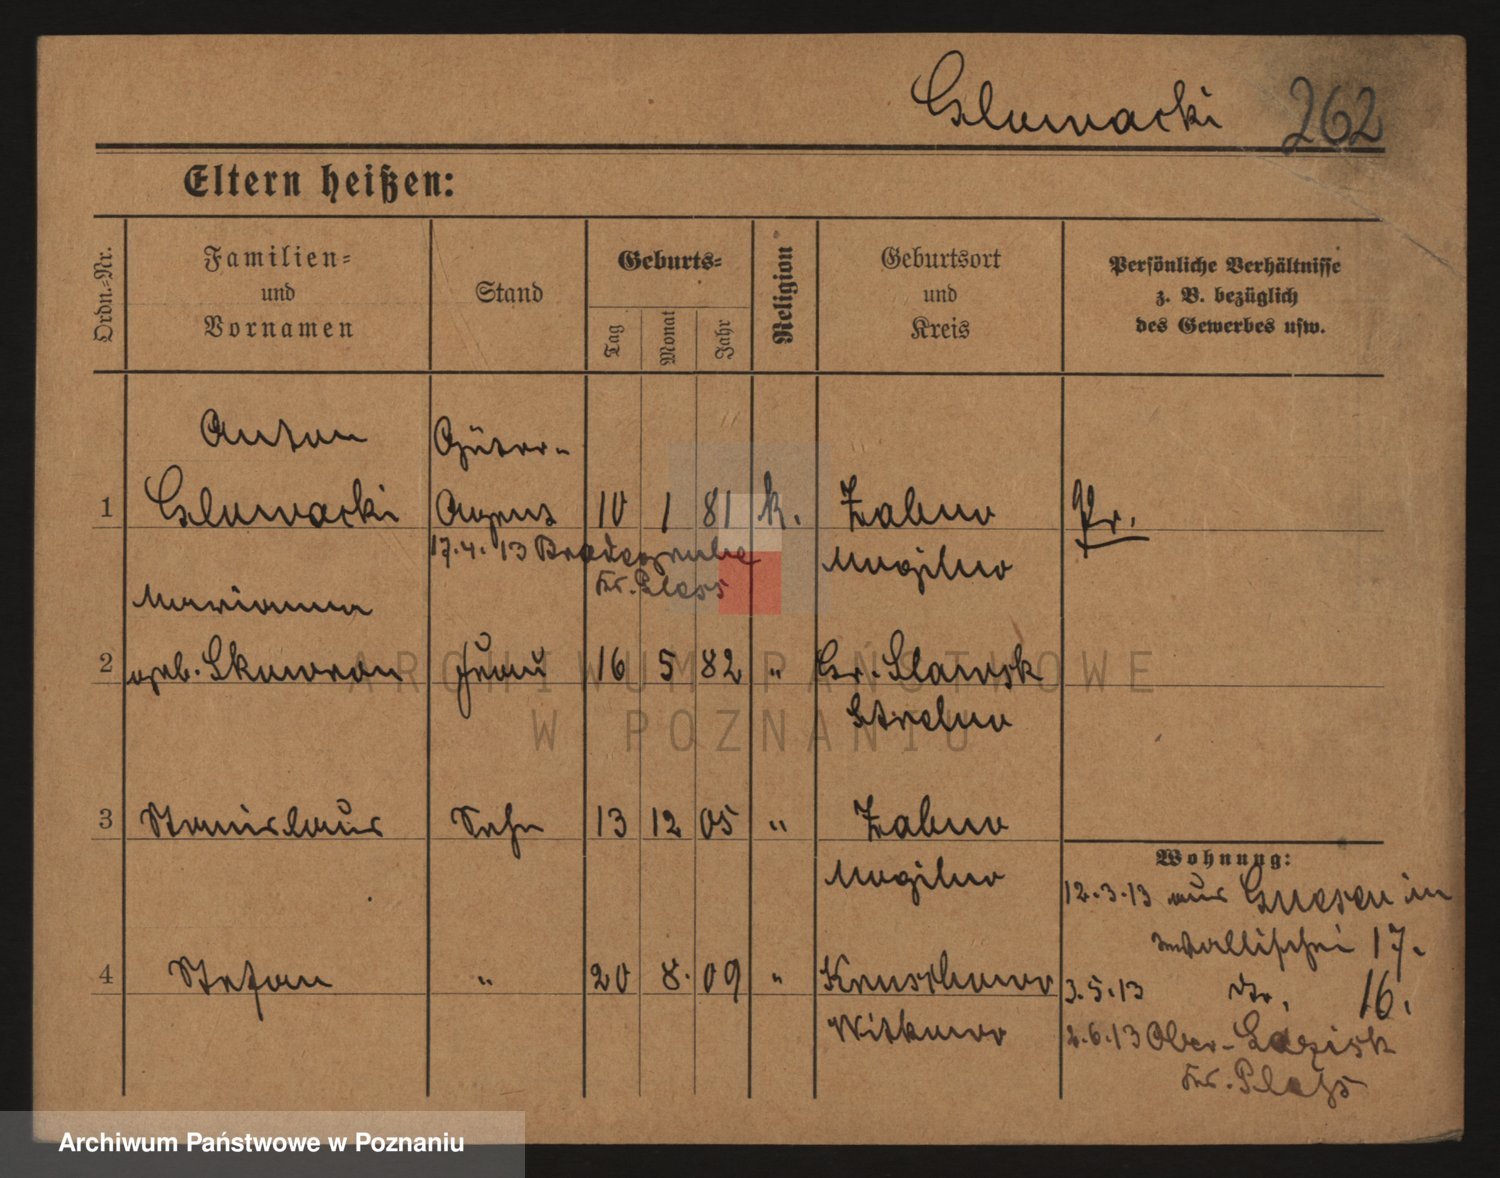 Glowacki 262
Eltern heißen:
Ordn.-Nr.
Familien-
und
Vornamen
Stand
Geburts-
Tag
Monat
Jahr
Religion
Geburtsort
und
Kreis
Persönliche Verhältnisse
z. B. bezüglich
des Gewerbes usw.
Anton Güter-
1 Glowacki Agent 10 1 81 k. Zabno Pr.
17.4.13 Bradegrube Mogilno
Kr. Pless
Marianna
2 geb. Skowron Frau 16 5 82 " Gr. Slawsk
Strelno
3 Stanislaus Sohn 13 12 05 " Zabno
Mogilno
Wohnung:
12.3.13 aus Gnesen in
Wallischei 17.
4 Stefan " 20 8. 09 " Kruschowo 3.5.13 do. 16.
Witkowo 2.6.13 Ober-Lazisk
Kr. Pleß
ARCHIWUM PAŃSTWOWE
W POZNANIU
Archiwum Państwowe w Poznaniu